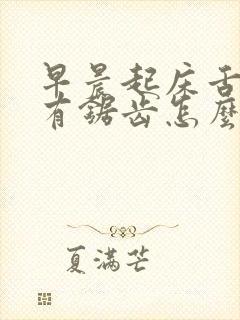 早晨起床舌
有鋸齿怎麽
夏满芒